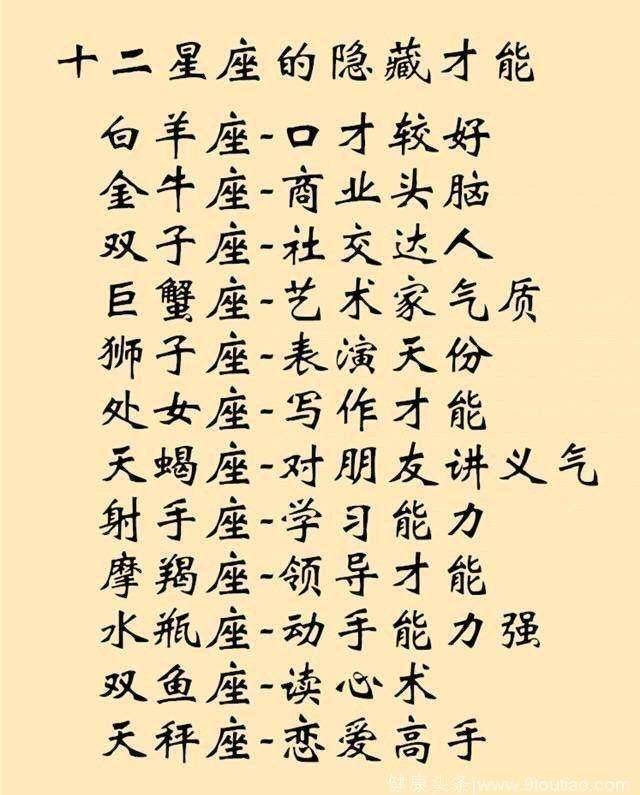 十二星座的隐藏才能
白羊座-口才较好
金牛座-商业头脑
双子座-社交达人
巨蟹座-艺术家气质
狮子座-表演天份
处女座-写作才能
天蝎座-对朋友讲义气
射手座-学习能力
摩羯座-领导才能
水瓶座-动手能力强
双鱼座-读心术
天秤座-恋爱高手
健康头条|www.9toutiao.com